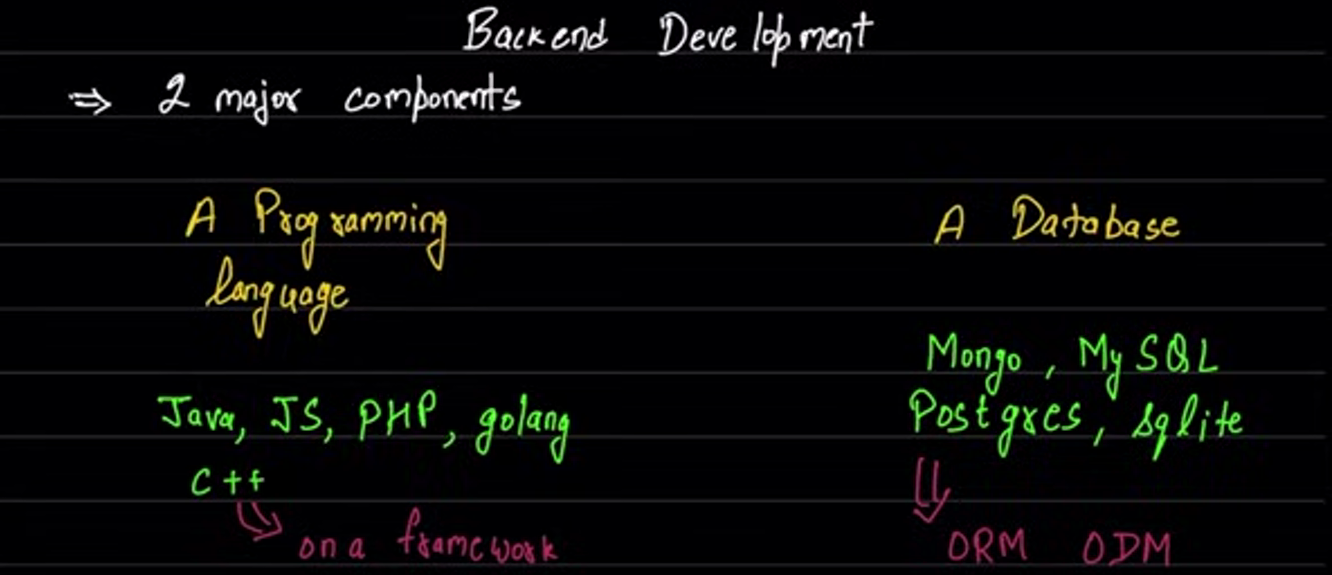 Backend Development
⇒ 2 major components
A Programming
language
Java, JS, PHP, golang
C++
on a framework
A Database
Mongo, MySQL
Postgres, sqlite
ORM ODM